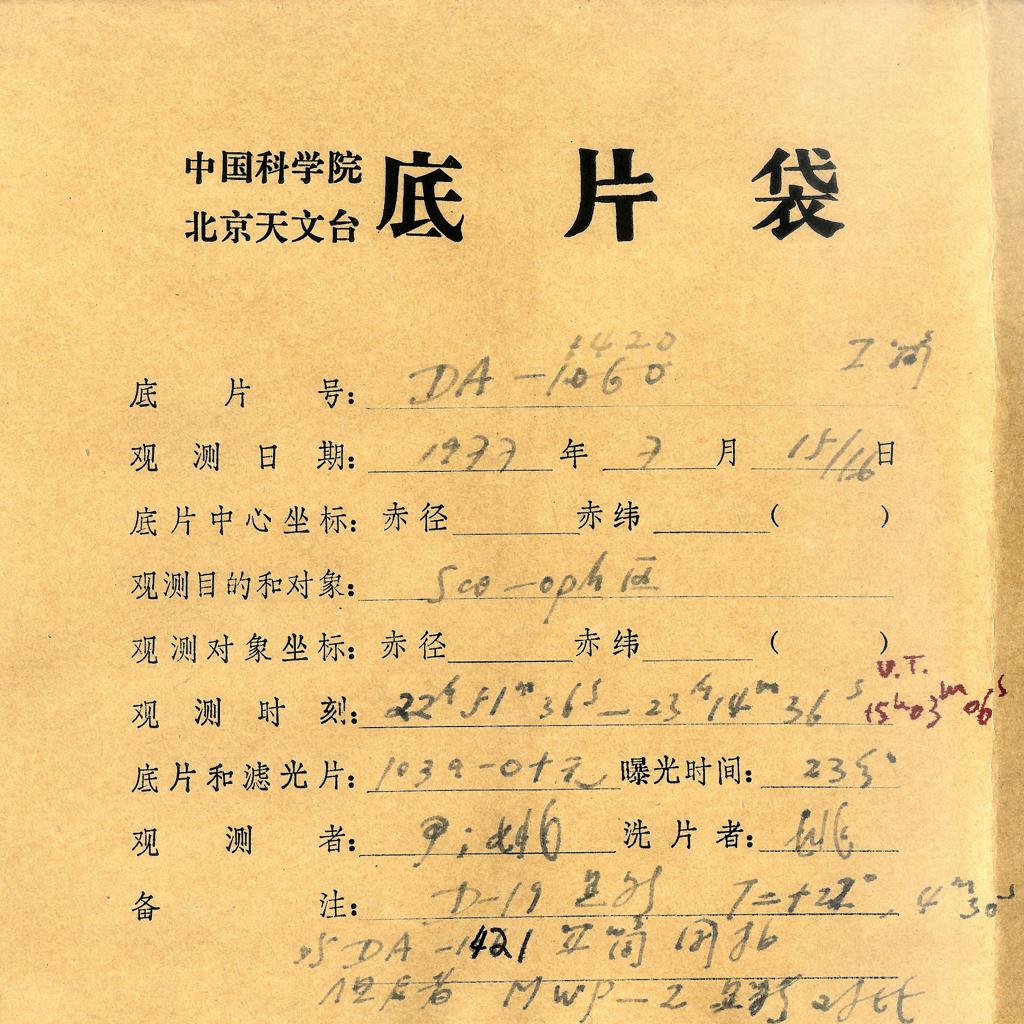 中国科学院
北京天文台
底片袋
1420
底片号: DA-1060 I筒
观测日期: 1977年7月15/16日
底片中心坐标: 赤径 赤纬 ( )
观测目的和对象: Sco-oph 区
观测对象坐标: 赤径 赤纬 ( )
U.T.
观测时刻: 22h51m36s-23h14m36s 15h03m06s
底片和滤光片: 103a-O+无 曝光时间: 23分
观测者: 洗片者:
备注: D-19 显影 T=+22° 4m30s
与DA-1421 II筒同拍
但后者 MWP-2 显影对比